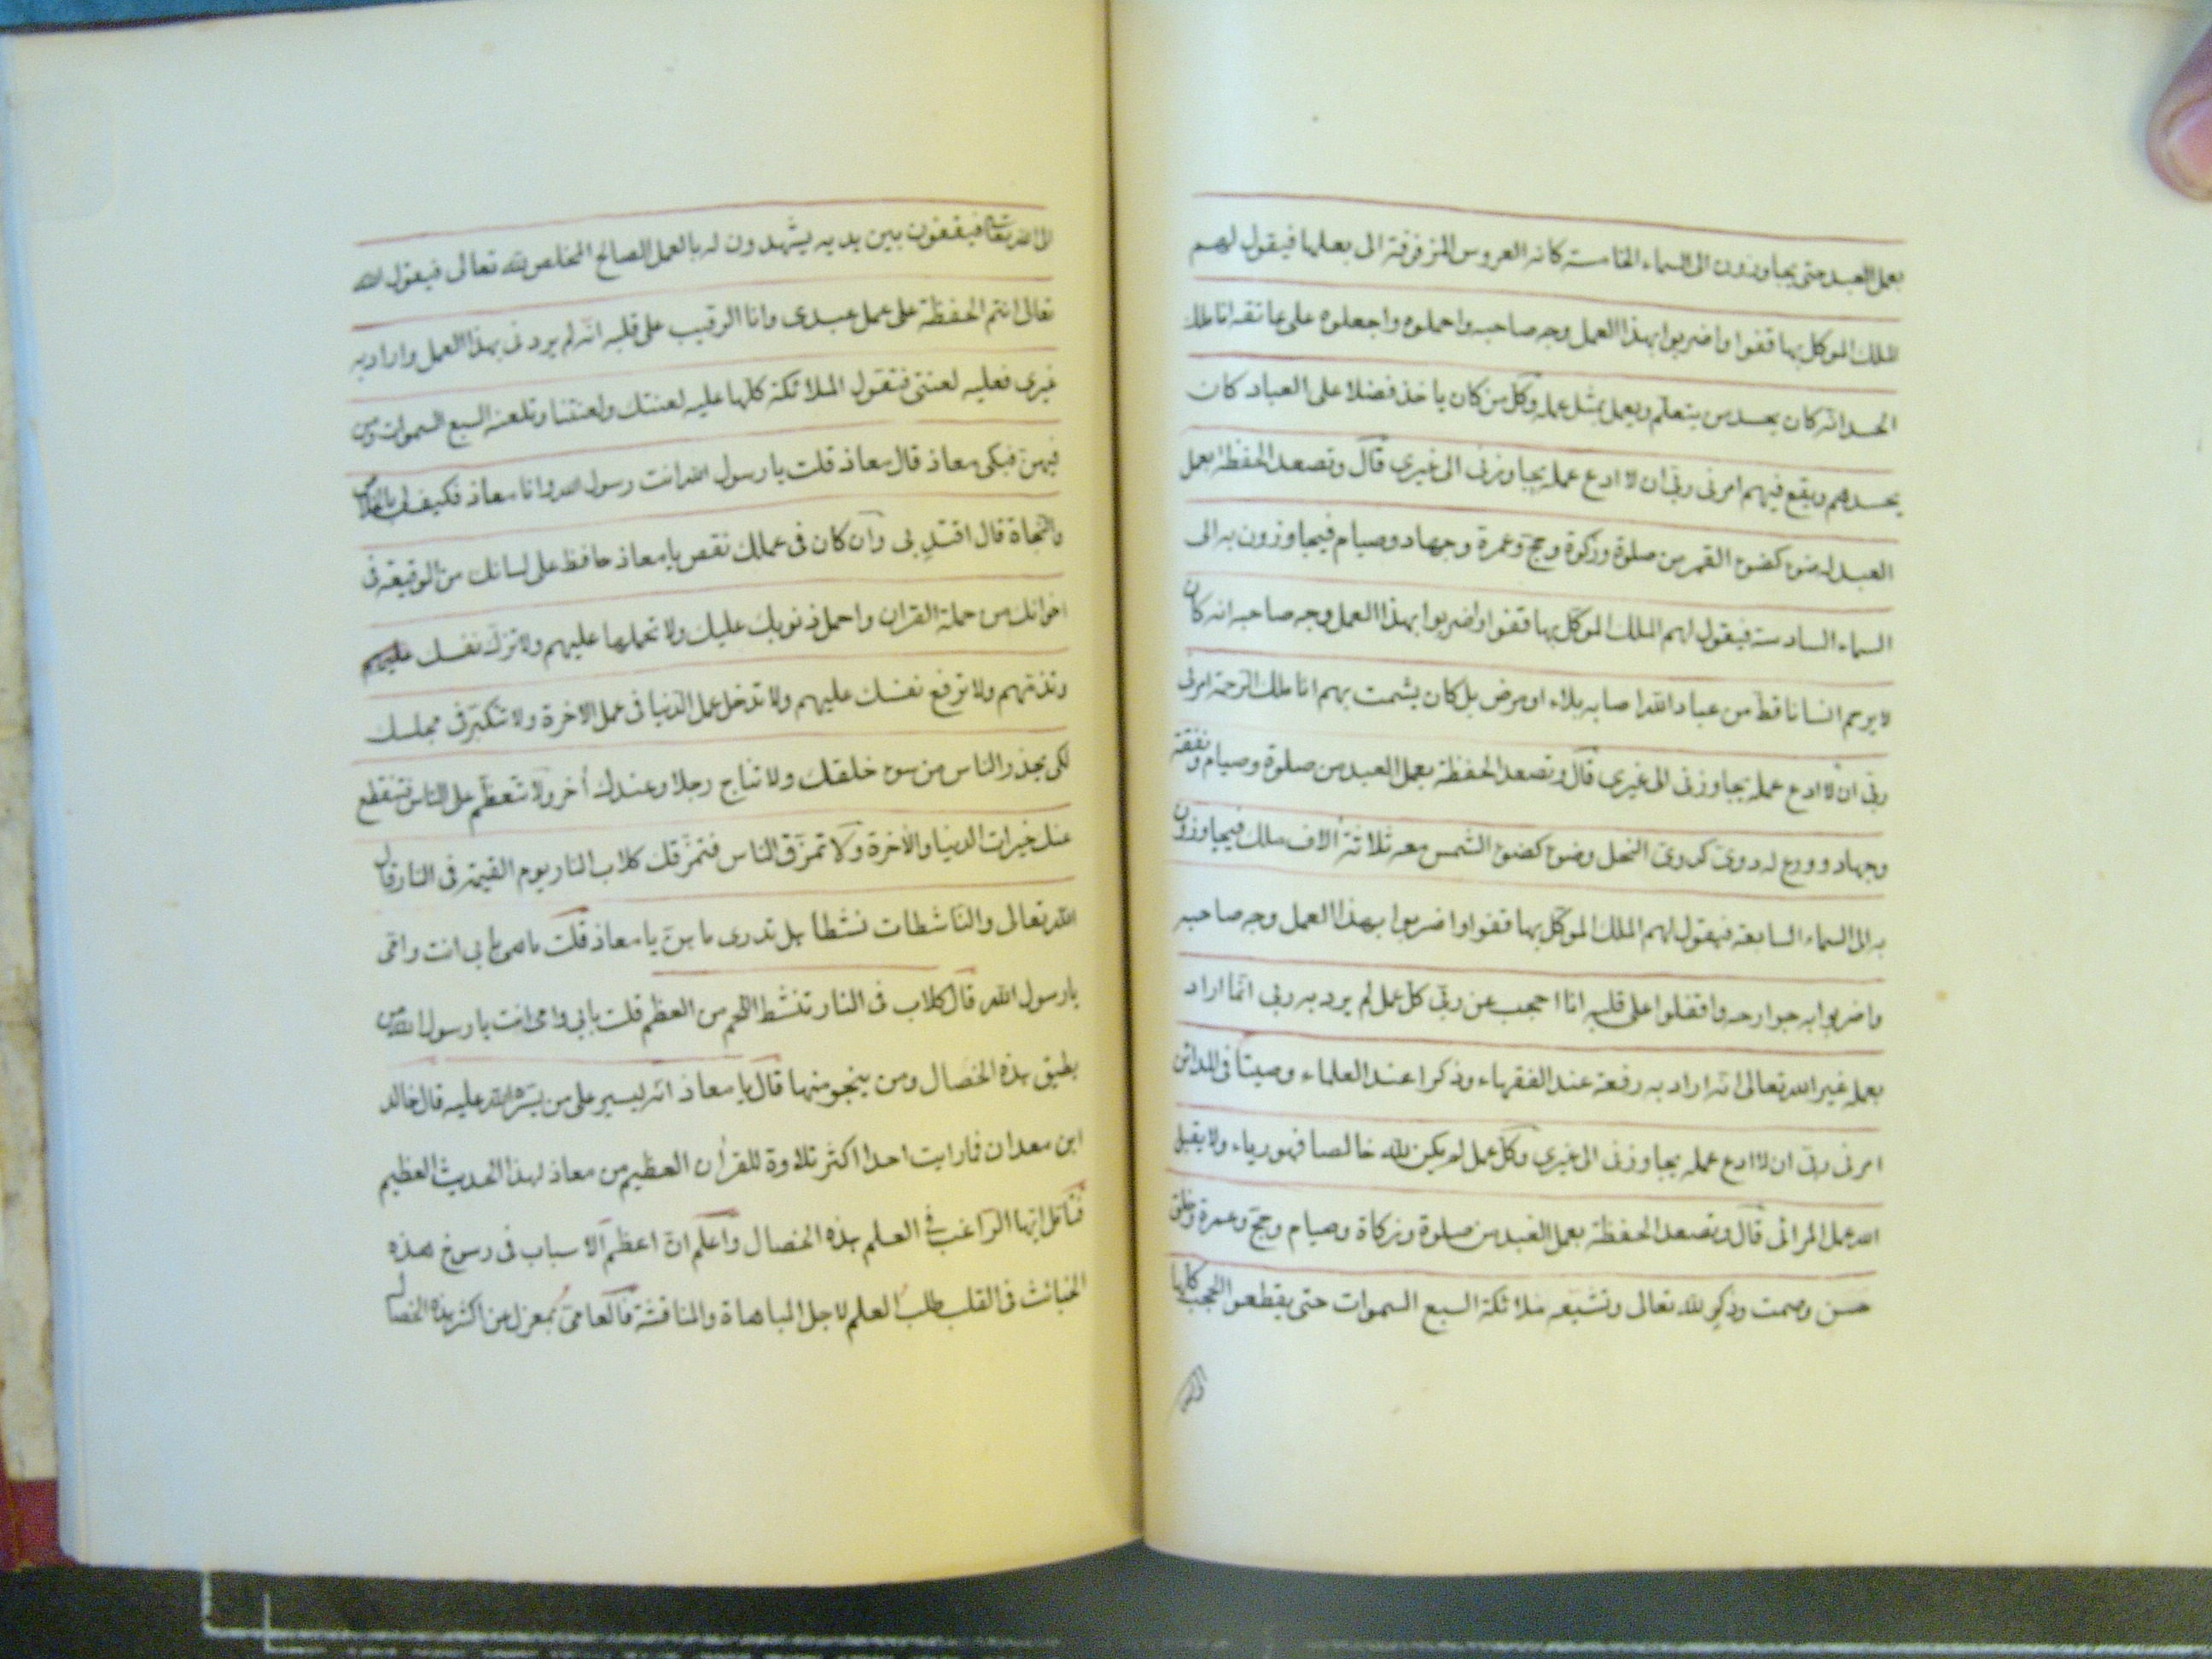 بعمل العبد حتى يجاوزون الى السماء الخامسة كانه العروس المزفوفة الى بعلها فيقول لهم
الملك الموكل بها قفوا واضربوا بهذا العمل وجه صاحبه واحملوه واجعلوه على عاتقه انا ملك
الحسد انه كان يحسد من يتعلم ويعمل بمثل عمله وكل من كان ياخذ فضلا على العباد كان
يحسدهم ويقع فيهم امرنى ربى ان لا ادع عمله يجاوزنى الى غيرى قال وتصعد الحفظة بعمل
العبد له ضوء كضوء القمر من صلوة وزكوة وحج وعمرة وجهاد وصيام فيجاوزون به الى
السماء السادسة فيقول لهم الملك الموكل بها قفوا واضربوا بهذا العمل وجه صاحبه انه كان
لا يرحم انسانا قط من عباد الله اصابه بلاء او مرض بل كان يشمت بهم انا ملك الرحمة امرنى
ربى ان لا ادع عمله يجاوزنى الى غيرى قال وتصعد الحفظة بعمل العبد من صلوة وصيام ونفقة
وجهاد وورع له دوىّ كدوىّ النحل وضوء كضوء الشمس معه ثلاثة آلاف ملك فيجاوزون
به الى السماء السابعة فيقول لهم الملك الموكل بها قفوا واضربوا بهذا العمل وجه صاحبه
واضربوا به جوارحه واقفلوا على قلبه انا احجب عن ربى كل عمل لم يرد به ربى انما اراد
بعمله غير الله تعالى انه اراد به رفعة عند الفقهاء وذكرا عند العلماء وصيتا فى المدائن
امرنى ربى ان لا ادع عمله يجاوزنى الى غيرى وكل عمل لم يكن لله خالصا فهو رياء ولا يقبل
الله عمل المرائى قال وتصعد الحفظة بعمل العبد من صلوة وزكاة وصيام وحج وعمرة وخلق
حسن وصمت وذكر لله تعالى وتشيعه ملائكة السبع السموات حتى يقطعوا الحجب كلها
الى الله تعالى فيقفون بين يديه يشهدون له بالعمل الصالح المخلص لله تعالى فيقول الله
تعالى انتم الحفظة على عمل عبدى وانا الرقيب على قلبه انه لم يردنى بهذا العمل واراد به
غيرى فعليه لعنتى فتقول الملائكة كلها عليه لعنتك ولعنتنا وتلعنه السبع السموات ومن
فيهن فبكى معاذ قال معاذ قلت يا رسول الله انت رسول الله وانا معاذ فكيف لى بالخلاص
والنجاة قال اقتدِ بى وان كان فى عملك نقص يا معاذ حافظ على لسانك من الوقيعة فى
اخوانك من حملة القران واحمل ذنوبك عليك ولا تحملها عليهم ولا تزك نفسك عليهم
وتذمهم ولا ترفع نفسك عليهم ولا تدخل عمل الدنيا فى عمل الاخرة ولا تتكبر فى مجلسك
لكى يحذر الناس من سوء خلقك ولا تناج رجلا وعندك أخر ولا تتعظم على الناس فتنقطع
عنك خيرات الدنيا والأخرة ولا تمزق الناس فتمزقك كلاب النار يوم القيمة فى النار قال
الله تعالى والناشطات نشطا هل تدرى ما هن يا معاذ قلت ما هى بابى انت وامى
يا رسول الله قال كلاب فى النار تنشط اللحم من العظم قلت بابى وامى انت يا رسول الله من
يطيق هذه الخصال ومن ينجو منها قال يا معاذ انه ليسير على من يسره الله عليه قال خالد
ابن معدان فما رايت احدا اكثر تلاوة للقرأن العظيم من معاذ لهذا الحديث العظيم
فتامل ايها الراغب فى العلم هذه الخصال واعلم ان اعظم الاسباب فى رسوخ هذه
الخبائث فى القلب طلب العلم لاجل المباهاة والمناقشة فالعامى بمعزل عن اكثر هذه الخصال